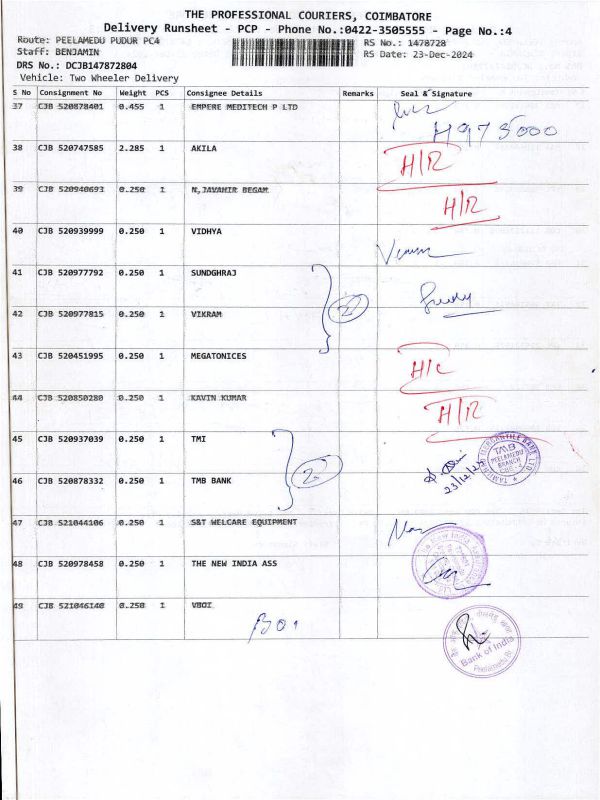 THE PROFESSIONAL COURIERS, COIMBATORE
Delivery Runsheet - PCP - Phone No.:0422-3505555 - Page No.:4
Route: PEELAMEDU PUDUR PC4 RS No.: 1478728
Staff: BENJAMIN RS Date: 23-Dec-2024
DRS No.: DCJB147872804
Vehicle: Two Wheeler Delivery
S No Consignment No Weight PCS Consignee Details Remarks Seal & Signature
37 CJB 520878401 0.455 1 EMPERE MEDITECH P LTD
H973000
38 CJB 520747585 2.285 1 AKILA H/R
39 CJB 520940693 0.250 1 N,JAVAHIR BEGAM H/R
40 CJB 520939999 0.250 1 VIDHYA
41 CJB 520977792 0.250 1 SUNDGHRAJ
2
42 CJB 520977815 0.250 1 VIKRAM
43 CJB 520451995 0.250 1 MEGATONICES H/C
44 CJB 520850280 0.250 1 KAVIN KUMAR H/R
45 CJB 520937039 0.250 1 TMI
2
TAMILNAD MERCANTILE BANK LTD
TMB
PEELAMEDU
BRANCH
23/12/24
46 CJB 520878332 0.250 1 TMB BANK
47 CJB 521044106 0.250 1 S&T WELCARE EQUIPMENT
The New India Assurance
48 CJB 520978458 0.250 1 THE NEW INDIA ASS
49 CJB 521046140 0.250 1 VBOI
BOI
Bank of India
Peelamedu Br